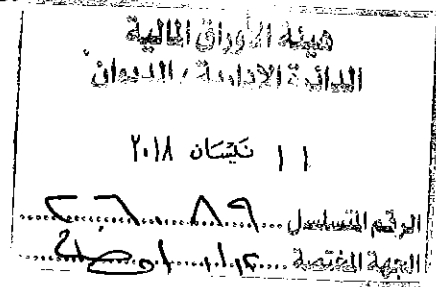 هيئة الأوراق المالية
الدائرة الإدارية / الديوان
١١ نيسان ٢٠١٨
الرقم المتسلسل
الجهة المختصة